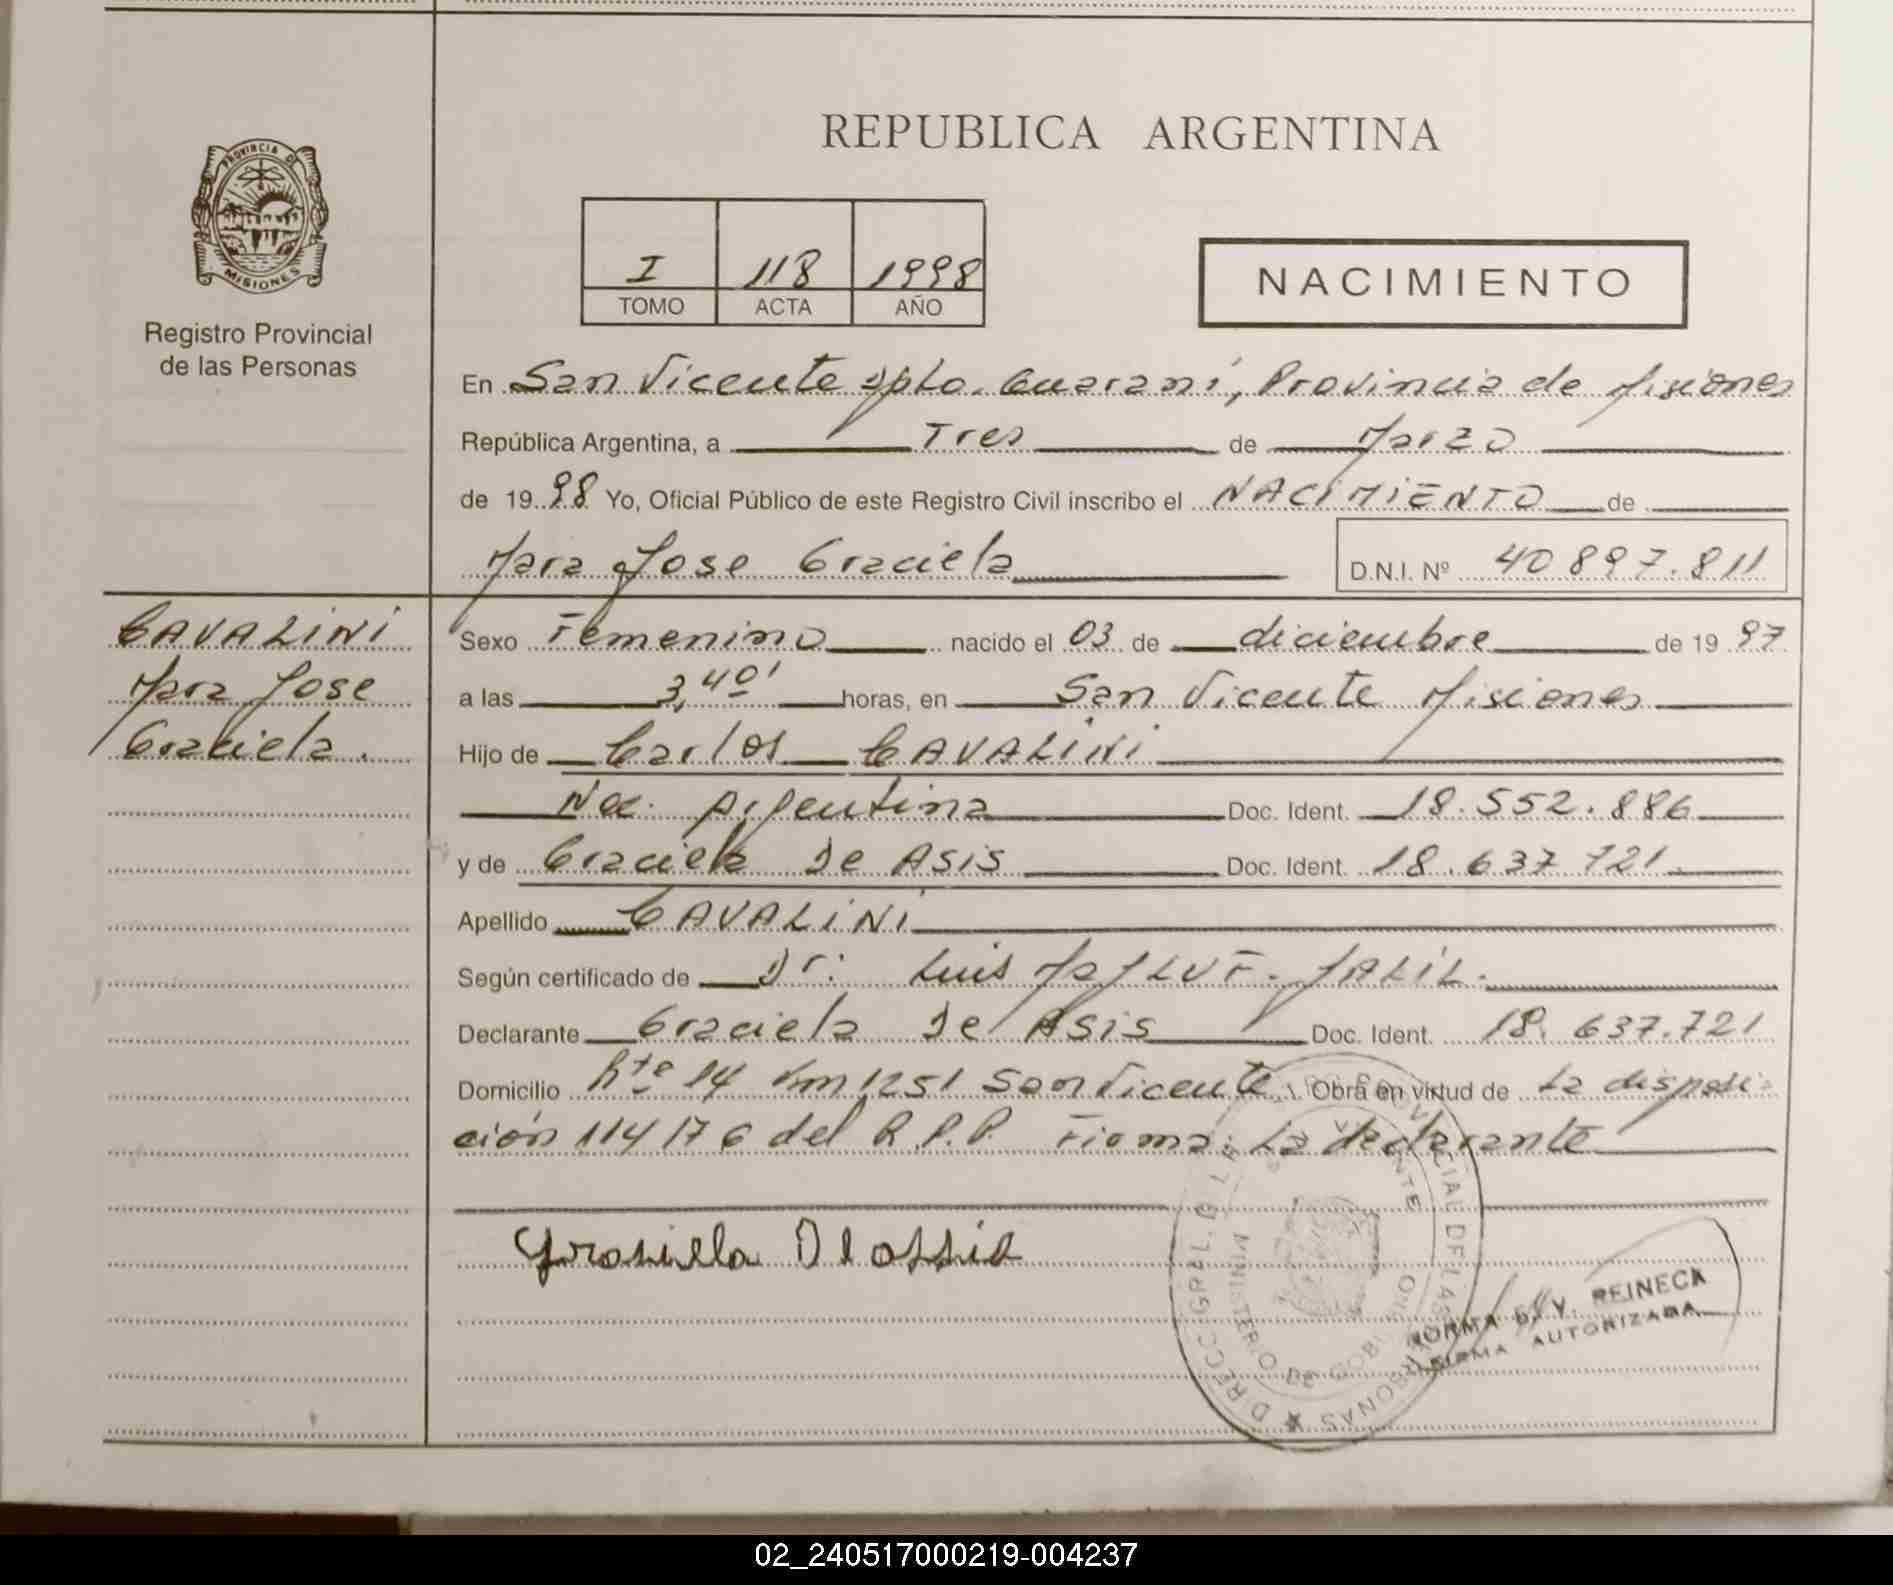 REPUBLICA ARGENTINA
PROVINCIA DE
MISIONES
Registro Provincial
de las Personas
I 118 1998
TOMO ACTA AÑO
NACIMIENTO
En San Vicente Dpto. Guaraní, Provincia de Misiones
República Argentina, a Tres de Marzo
de 1998 Yo, Oficial Público de este Registro Civil inscribo el NACIMIENTO de
Mara Jose Graciela D.N.I. Nº 40 897.811
CAVALINI
Mara Jose
Graciela.
Sexo Femenino nacido el 03 de diciembre de 1997
a las 3,40' horas, en San Vicente Misiones
Hijo de Carlos CAVALINI
Nac. Argentina Doc. Ident. 18.552.886
y de Graciela De Asis Doc. Ident. 18.637 721.
Apellido CAVALINI
Según certificado de Dr. Luis JALIL.
Declarante Graciela De Asis Doc. Ident. 18.637.721
Domicilio Rta 14 km 1251 San Vicente. Obra en virtud de La disposi-
ción 114/76 del R.P.P. Firma: La declarante
DIREC. GRAL. D L R PROVINCIAL DE LAS PERSONAS
MINISTERIO DE GOBIERNO
NORMA V. REINECK
FIRMA AUTORIZADA
02_240517000219-004237